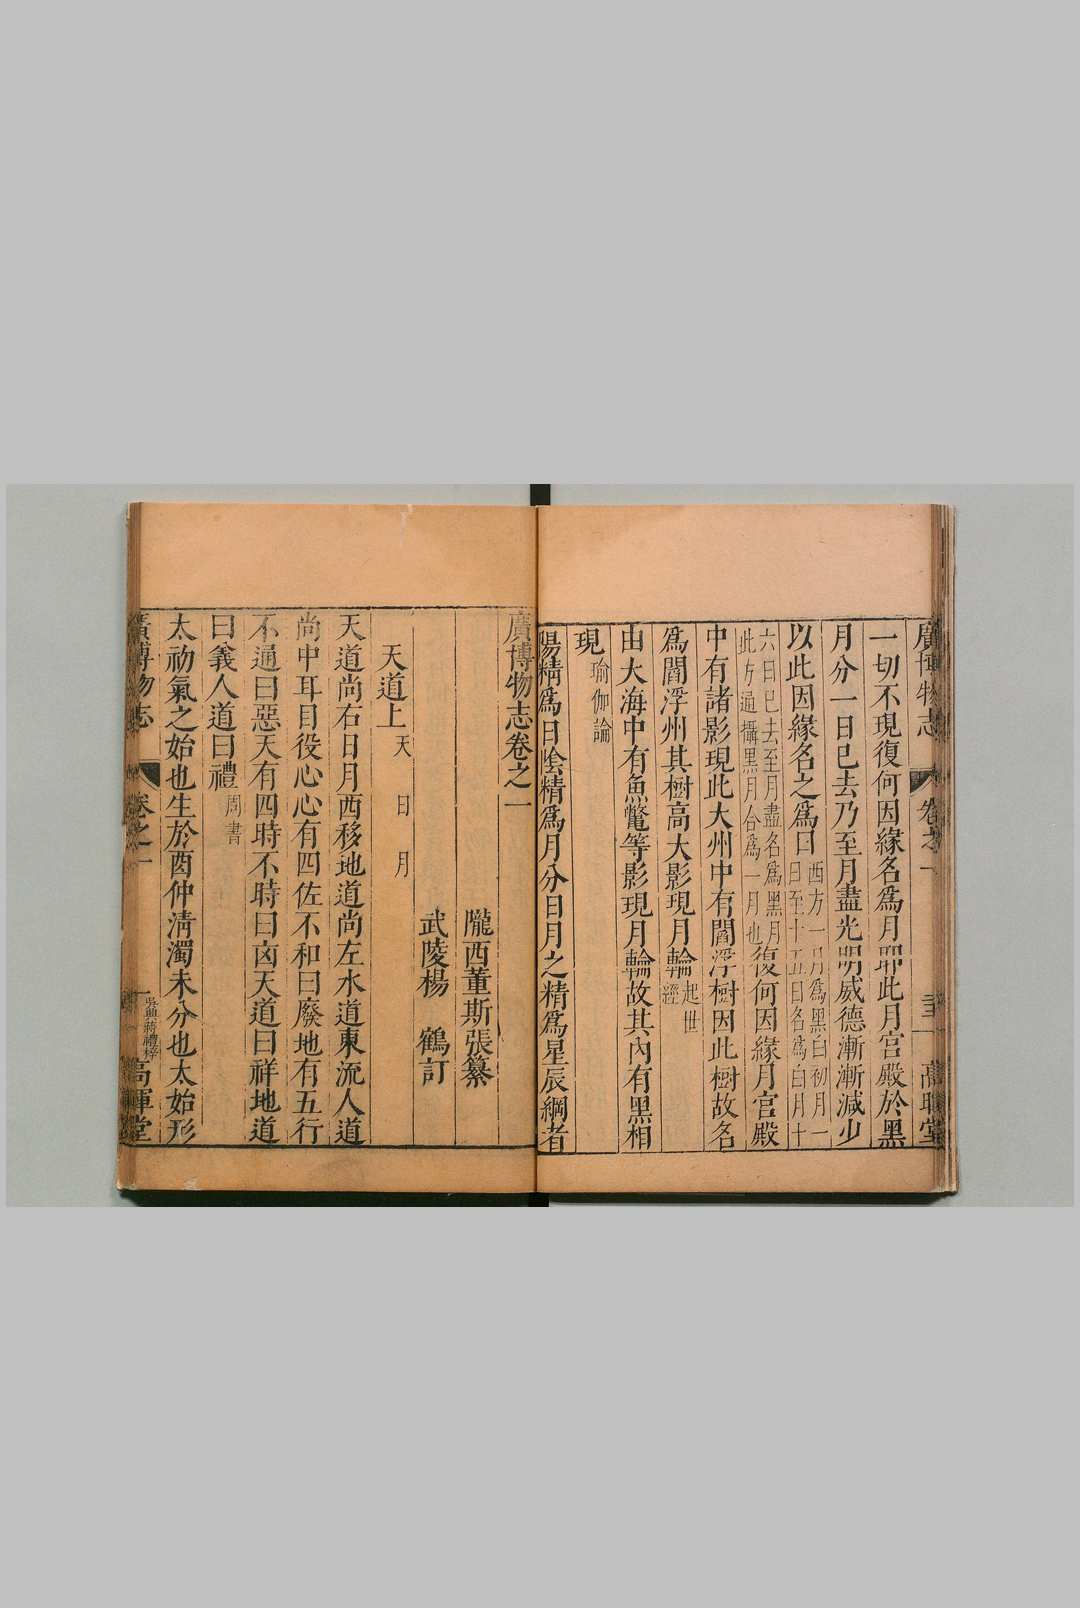 廣博物志 卷之一 三十一 高暉堂
一切不現復何因緣名爲月耶此月宮殿於黑
月分一日已去乃至月盡光明威德漸漸減少
以此因緣名之爲月西方一月爲黑白初月一日至十五日名爲白月十
六日已去至月盡名爲黑月此方通攝黑月合爲一月也復何因緣月宮殿
中有諸影現此大州中有閻浮樹因此樹故名
爲閻浮州其樹高大影現月輪起世經
由大海中有魚鼈等影現月輪故其內有黑相
現瑜伽論
陽精爲日陰精爲月分日月之精爲星辰綱者
廣博物志卷之一
隴西董斯張纂
武陵楊 鶴訂
天道上天 日 月
天道尚右日月西移地道尚左水道東流人道
尚中耳目役心心有四佐不和曰廢地有五行
不通曰惡天有四時不時曰凶天道曰祥地道
曰義人道曰禮周書
太初氣之始也生於酉仲淸濁未分也太始形
廣博物志 卷之一 一 吳興蔣禮梓 高暉堂